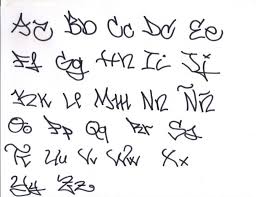 Aa Bb Cc Dd Ee
Ff Gg Hh Ii Jj
Kk Ll Mm Nn Ññ
Oo Pp Qq Rr Ss
Tt Uu Vv Ww Xx
Yy Zz